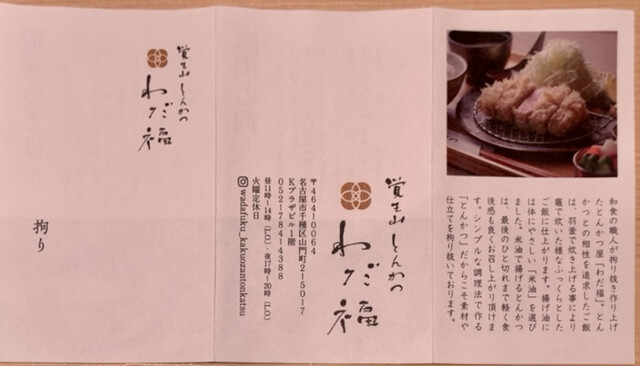 和食の職人が拘り抜き作り上げ
たとんかつ屋「わだ福」。とん
かつとの相性を追求したご飯
は、羽釜で炊き上げる事により
竈で炊いた様なふっくらとした
ご飯に仕上がります。揚げ油に
は体にやさしい「米油」を選び
ました。米油で揚げるとんかつ
は、最後の水と切れまで軽く食
後感も良くお召し上がり頂けま
す。シンプルな調理法で作る
「とんかつ」だからこそ素材や
仕立てを拘り抜いております。
覚王山 とんかつ
わだ福
〒464-0064
名古屋市千種区山門町2-150-7
Kプラザビル1階
052-784-4388
昼11時〜14時（L.O.）・夜17時〜20時（L.O.）
火曜定休日
wadafuku_kakuozantonkatsu
覚王山 とんかつ
わだ福
拘り